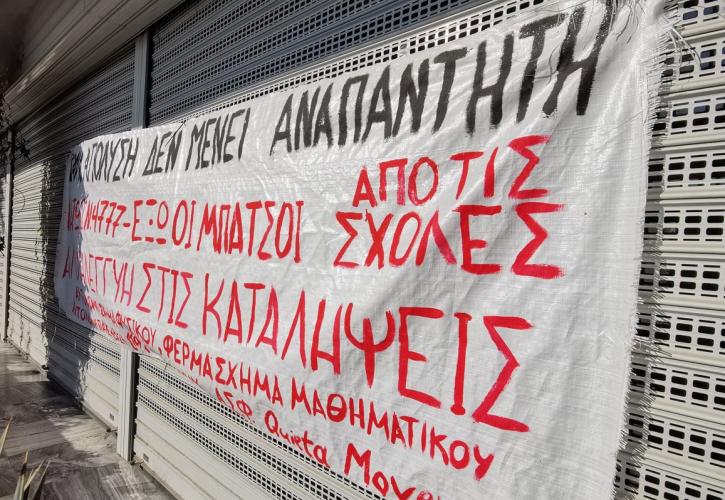 ΑΠΟΛΥΣΗ ΔΕΝ ΜΕΝΕΙ ΑΝΑΠΑΝΤΗΤΗ
Ν4777-ΕΞΩ ΟΙ ΜΠΑΤΣΟΙ ΑΠΟ ΤΙΣ ΣΧΟΛΕΣ
ΑΛΛΗΛΕΓΓΥΗ ΣΤΙΣ ΚΑΤΑΛΗΨΕΙΣ
ΦΥΣΙΚΟΥ, ΦΕΡΜΑ ΣΧΗΜΑ ΜΑΘΗΜΑΤΙΚΟΥ
Quieta